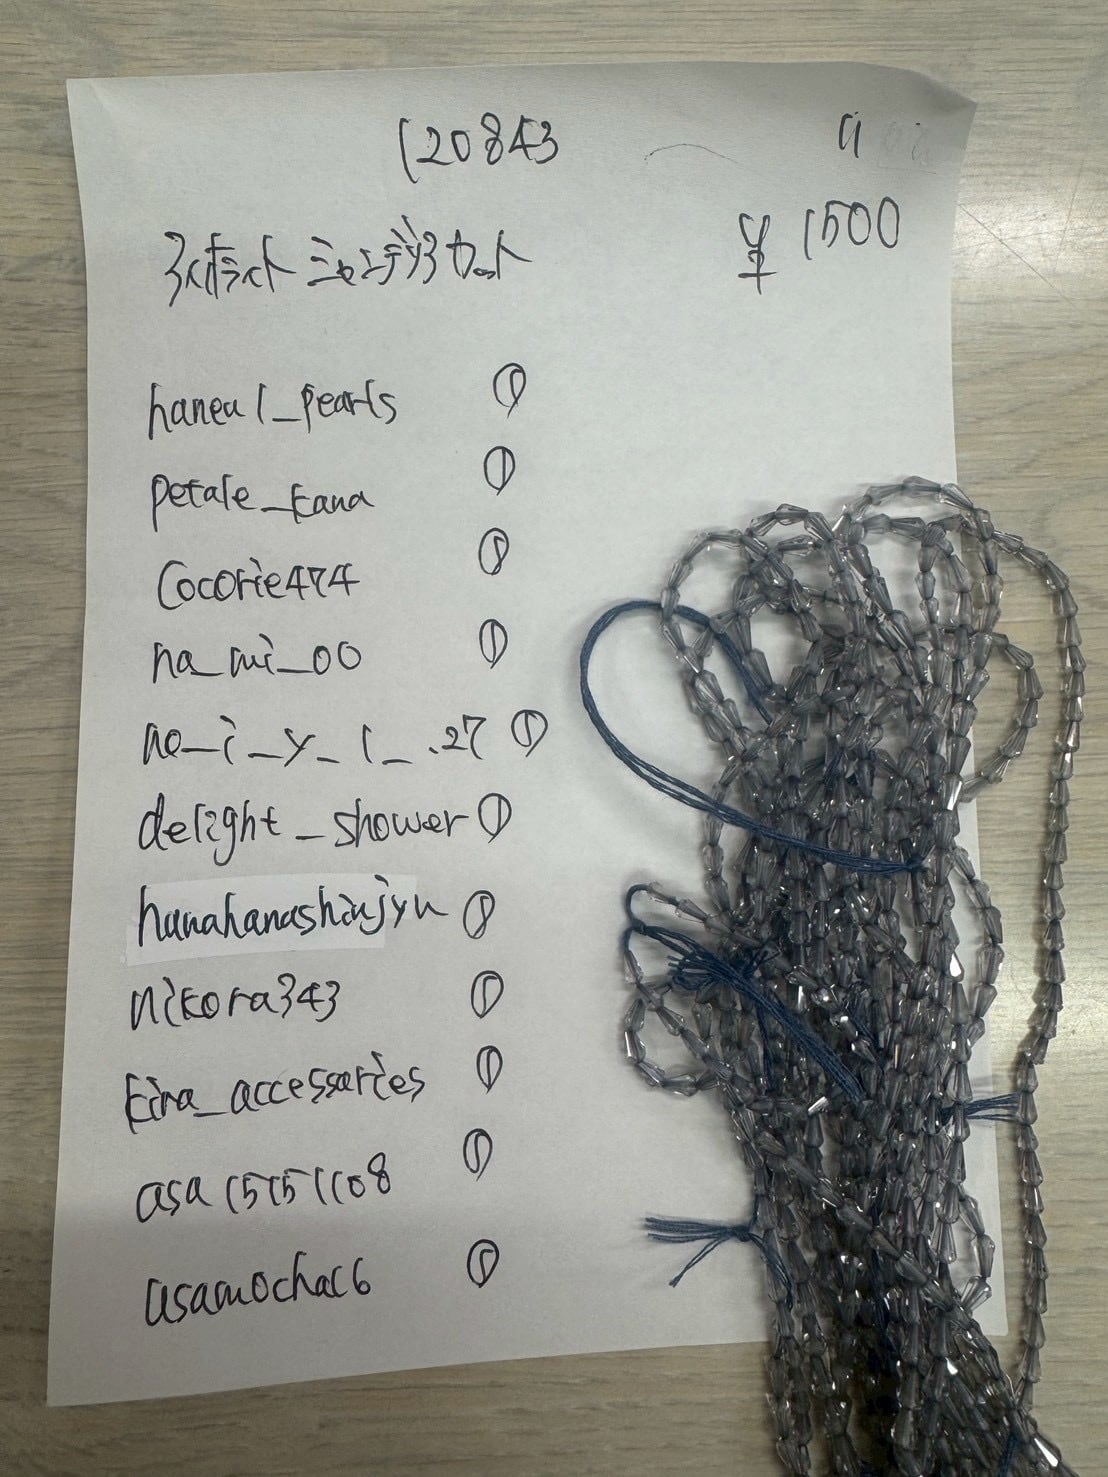 120843
¥1500
アイオライト シャンデリアカット
haneul_pearls ①
petale_kana ①
cocorie474 ①
na_mi_00 ①
no_i_y_l_.27 ①
delight_shower ①
hanahanashinjyu ①
nikora343 ①
kira_accessaries ①
asa15151108 ①
asamocha16 ①